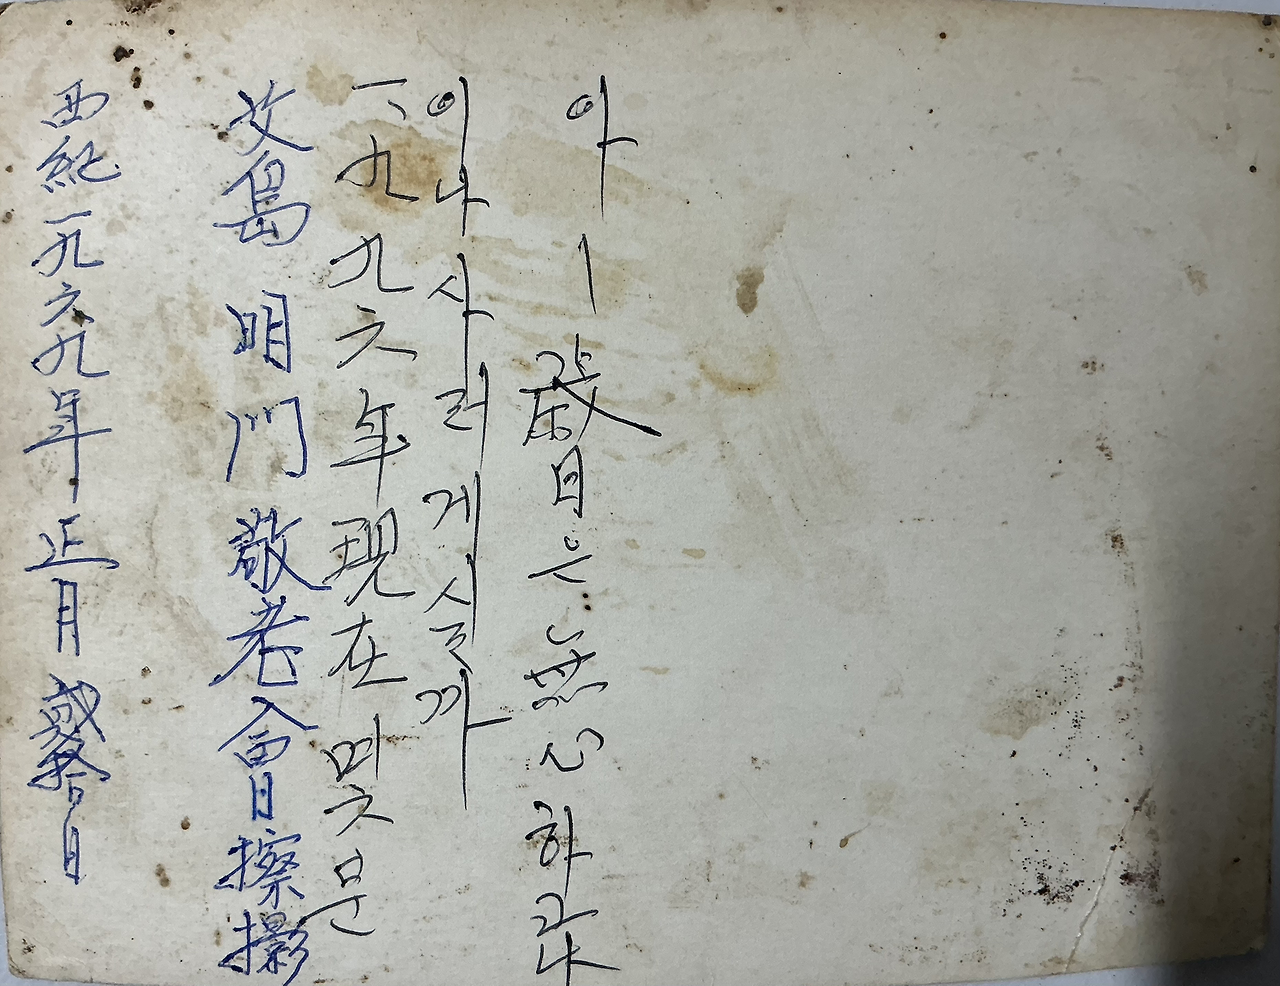 西紀一九六九年 正月 貳拾日
艾島 明門 敬老會 擦
一九九六年 現在 몃분
이나 사러 게시
아! 歲月은 無心하고나